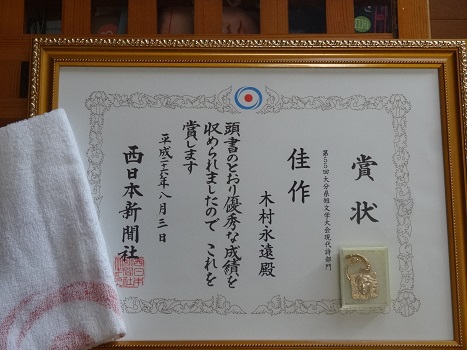 賞状
第55回大分県短文学大会現代詩部門
佳作
木村永遠殿
頭書のとおり優秀な成績を
収められましたので これを
賞します
平成二十六年八月三日
西日本新聞社